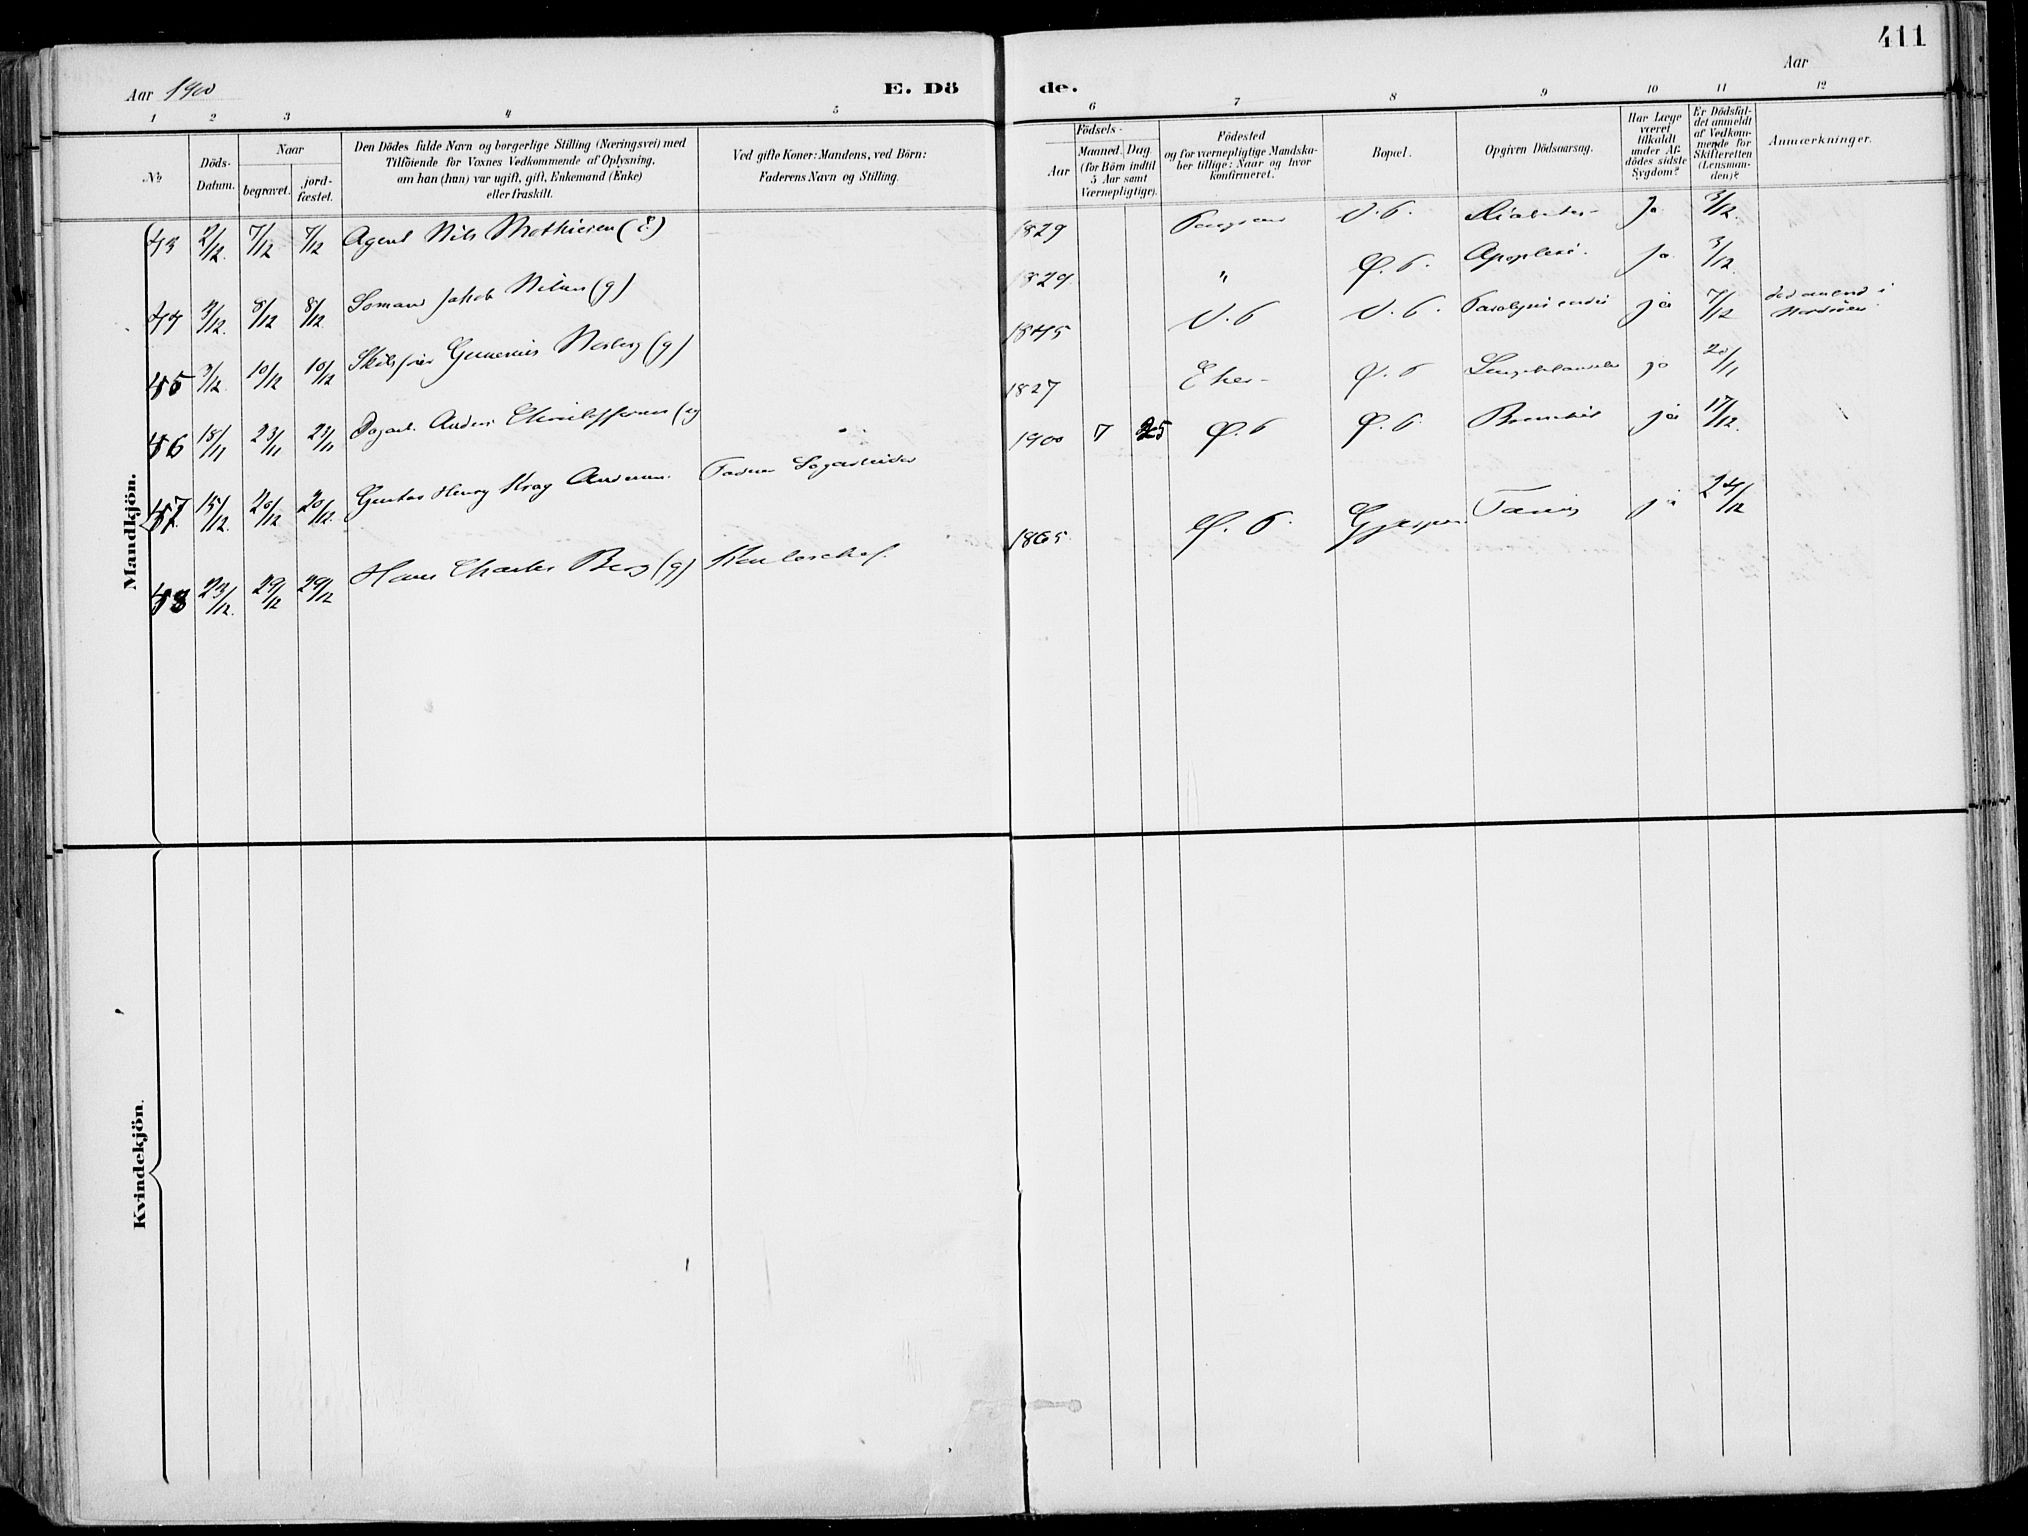 411
Aar 1900
E. Dö
de.
Aar
1 2 3 4 5 6 7 8 9 10 11 12
No
Döds-
Datum.
Naar
begravet.
jord-
fæstet.
Den Dödes fulde Navn og borgerlige Stilling (Næringsvei) med
Tilföiende for Voxnes Vedkommende af Oplysning,
om han (hun) var ugift, gift, Enkemand (Enke)
eller fraskilt.
Ved gifte Koner: Mandens, ved Börn:
Faderens Navn og Stilling.
Födsels-
Aar
Maaned. Dag
(for Börn indtil
5 Aar samt
Værnepligtige).
Födested
og for værnepligtige Mandska-
ber tillige: Naar og hvor
konfirmeret.
Bopæl.
Opgiven Dödsaarsag.
Har Læge
været
tilkaldt
under Af-
dödes sidste
Sygdom?
Er Dödsfal-
det anmeldt
af Vedkom-
mende for
Skifteretten
(Lensman-
den)?
Anmærkninger.
Mandkjön.
43 2/12 7/12 7/12 Agent Nils Mathiesen (E) 1829 V. P. Diabetes Ja 3/12
44 3/12 8/12 8/12 Sømand Jakob Nilsen (g) 1829 " Ø. P. Apoplexi. Ja 3/12
45 3/12 10/12 10/12 Gunerius (g) 1845 V. P V. P. ja 7/12
46 18/11 23/11 23/11 Dagarb. Anders Christoffersen 1827 Eker Ø. P ja 20/11
47 15/12 20/12 20/12 Gustav Henry Krag Andersen. 1900 7 25 Ø. P Ø. P. ja 17/12
48 23/12 29/12 29/12 Hans Charles Berg (g) 1865 Ø. P. ja 24/12
Kvindekjön.